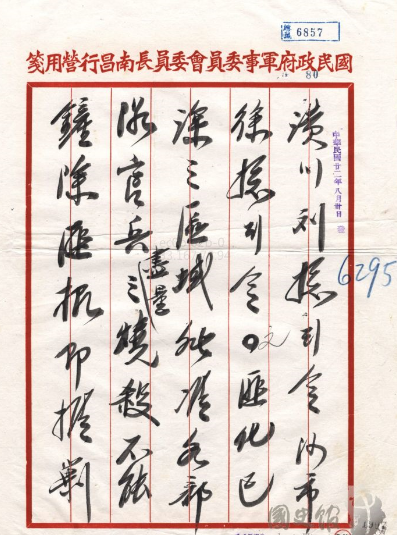 6857
80
國民政府軍事委員會委員長南昌行營用箋
中華民國廿二年八月卅日
6295
潢川劉總司令沙市
徐總司令。文匪化已
深之區域非准各部
隊官兵之盡量燒殺不能
鏟除匪根即擬剿
國史館